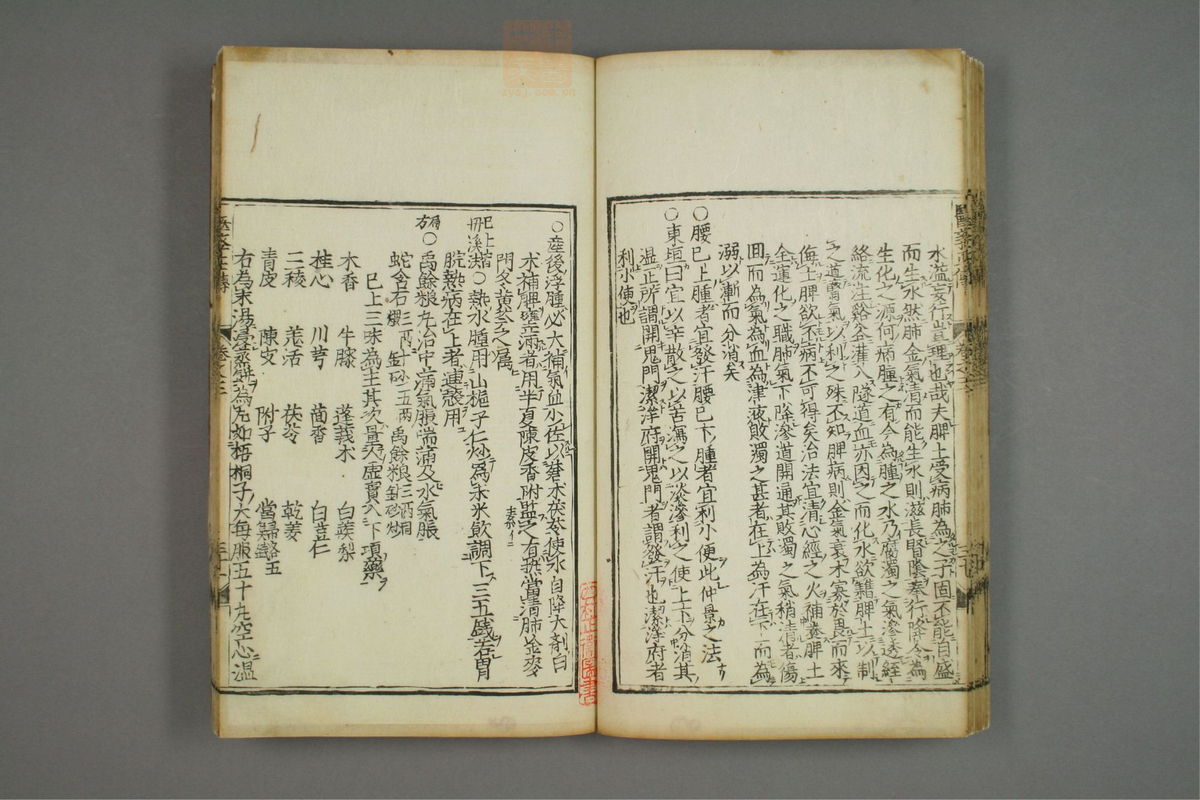 水溢妄行豈理也哉夫脾土受病肺為之子固不能自盛
而生水然肺金氣清而能生水則滋長腎陰奉行降令為
生化之源何病腫之有今為腫之水乃腐濁之氣滲透經
絡流注谿谷灌入隧道血亦因之而化水欲藉脾土以制
之道腎氣以利之殊不知脾病則金氣衰木寡於畏而來
侮土脾欲不病不可得矣治法宜清心經之火補養脾土
全運化之職肺氣下降滲道開通其敗濁之氣稍清者復
回而為氣為血為津液敗濁之甚者在上為汗在下而為
溺以漸而分消矣
○腰已上腫者宜發汗腰已下腫者宜利小便此仲景之法
○東垣曰宜以辛散之以苦瀉之以淡滲利之使上下分消其
溼正所謂開鬼門潔淨府開鬼門者謂發汗也潔淨府者
利小便也
○產後浮腫必大補氣血少佐以蒼朮茯苓使水自降大劑白
朮補脾壅滿者用半夏陳皮香附監之有熱當清肺金麥
門冬黃芩之屬
丹溪 ○熱水腫用山梔子仁炒為末米飲調下三五錢若胃
脘熱病在上者連殼用
局方○禹餘糧丸治中滿氣脹喘滿及水氣脹
蛇含石 三兩 針砂五兩 禹餘糧三兩
已上三味為主其次量人虛實入下項藥
木香 牛膝 蓬莪朮 白蒺梨
桂心 川芎 茴香 白豆仁
三稜 羌活 茯苓 乾姜
青皮 陳皮 附子 當歸各五
右為末湯浸蒸餅為丸如梧桐子大每服五十丸空心溫